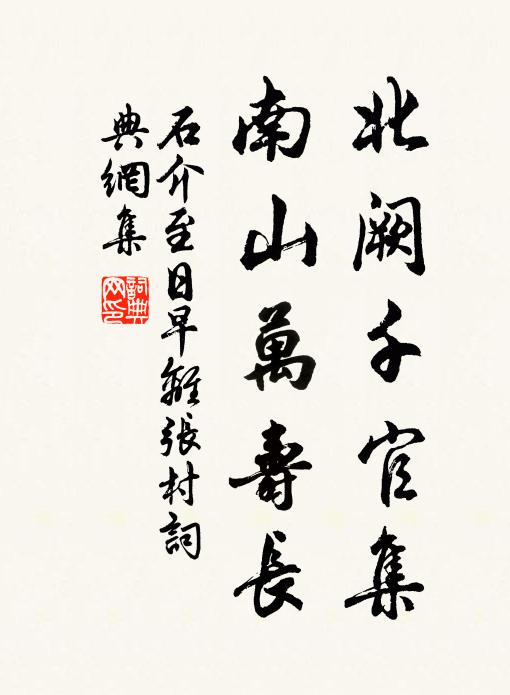 北闕千官集
南山萬壽長
石介至日早離張村詞
典網集
詞典
网印